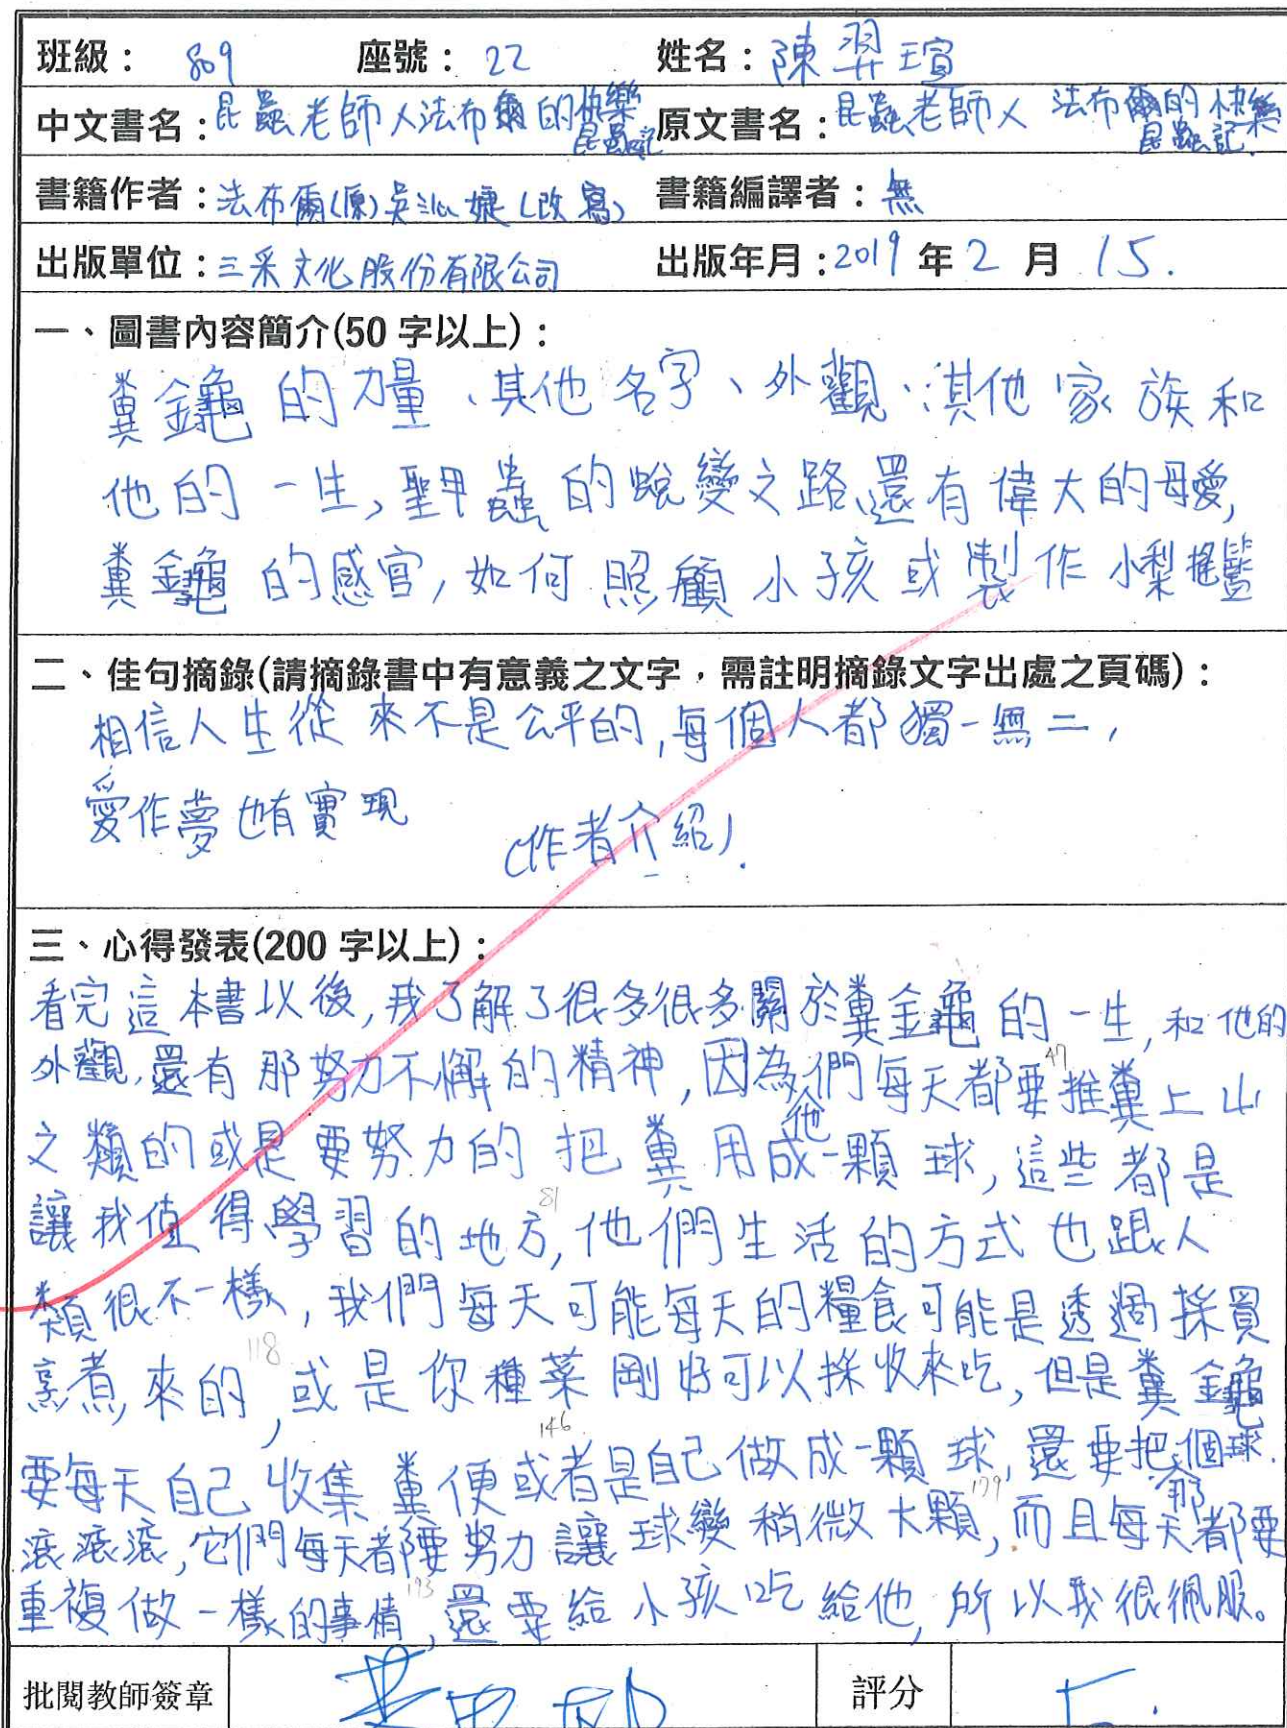 班級： 809 座號： 22 姓名：陳羿瑄
中文書名：昆蟲老師人法布爾的快樂昆蟲記 原文書名：昆蟲老師人 法布爾的快樂昆蟲記
書籍作者：法布爾(原)吳沁婕(改寫) 書籍編譯者：無
出版單位：三采文化股份有限公司 出版年月：2019 年 2 月 15.
一、圖書內容簡介(50 字以上)：
糞金龜的力量、其他名字、外觀、其他家族和
他的一生，聖甲蟲的蛻變之路還有偉大的母愛，
糞金龜的感官，如何照顧小孩或製作小梨搖籃
二、佳句摘錄(請摘錄書中有意義之文字，需註明摘錄文字出處之頁碼)：
相信人生從來不是公平的，每個人都獨一無二，
愛作夢也有實現
(作者介紹).
三、心得發表(200 字以上)：
看完這本書以後，我了解了很多很多關於糞金龜的一生，和他的
外觀，還有那努力不懈的精神，因為他們每天都要推糞上山
之類的或是要努力的把糞用成一顆球，這些都是
讓我值得學習的地方，他們生活的方式也跟人
類很不一樣，我們每天可能每天的糧食可能是透過採買
烹煮來的，或是你種菜剛好可以採收來吃，但是糞金龜
要每天自己收集糞便或者是自己做成一顆球，還要把那個球
滾滾滾，它們每天都要努力讓球變稍微大顆，而且每天都要
重複做一樣的事情，還要給小孩吃給他，所以我很佩服。
批閱教師簽章 評分